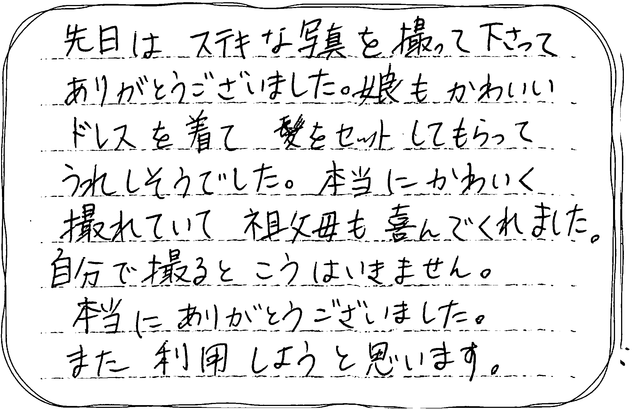 先日は ステキな写真を撮って下さって
ありがとうございました。娘もかわいい
ドレスを着て 髪をセットしてもらって
うれしそうでした。本当にかわいく
撮れていて 祖父母も喜んでくれました。
自分で撮るとこうはいきません。
本当にありがとうございました。
また利用しようと思います。